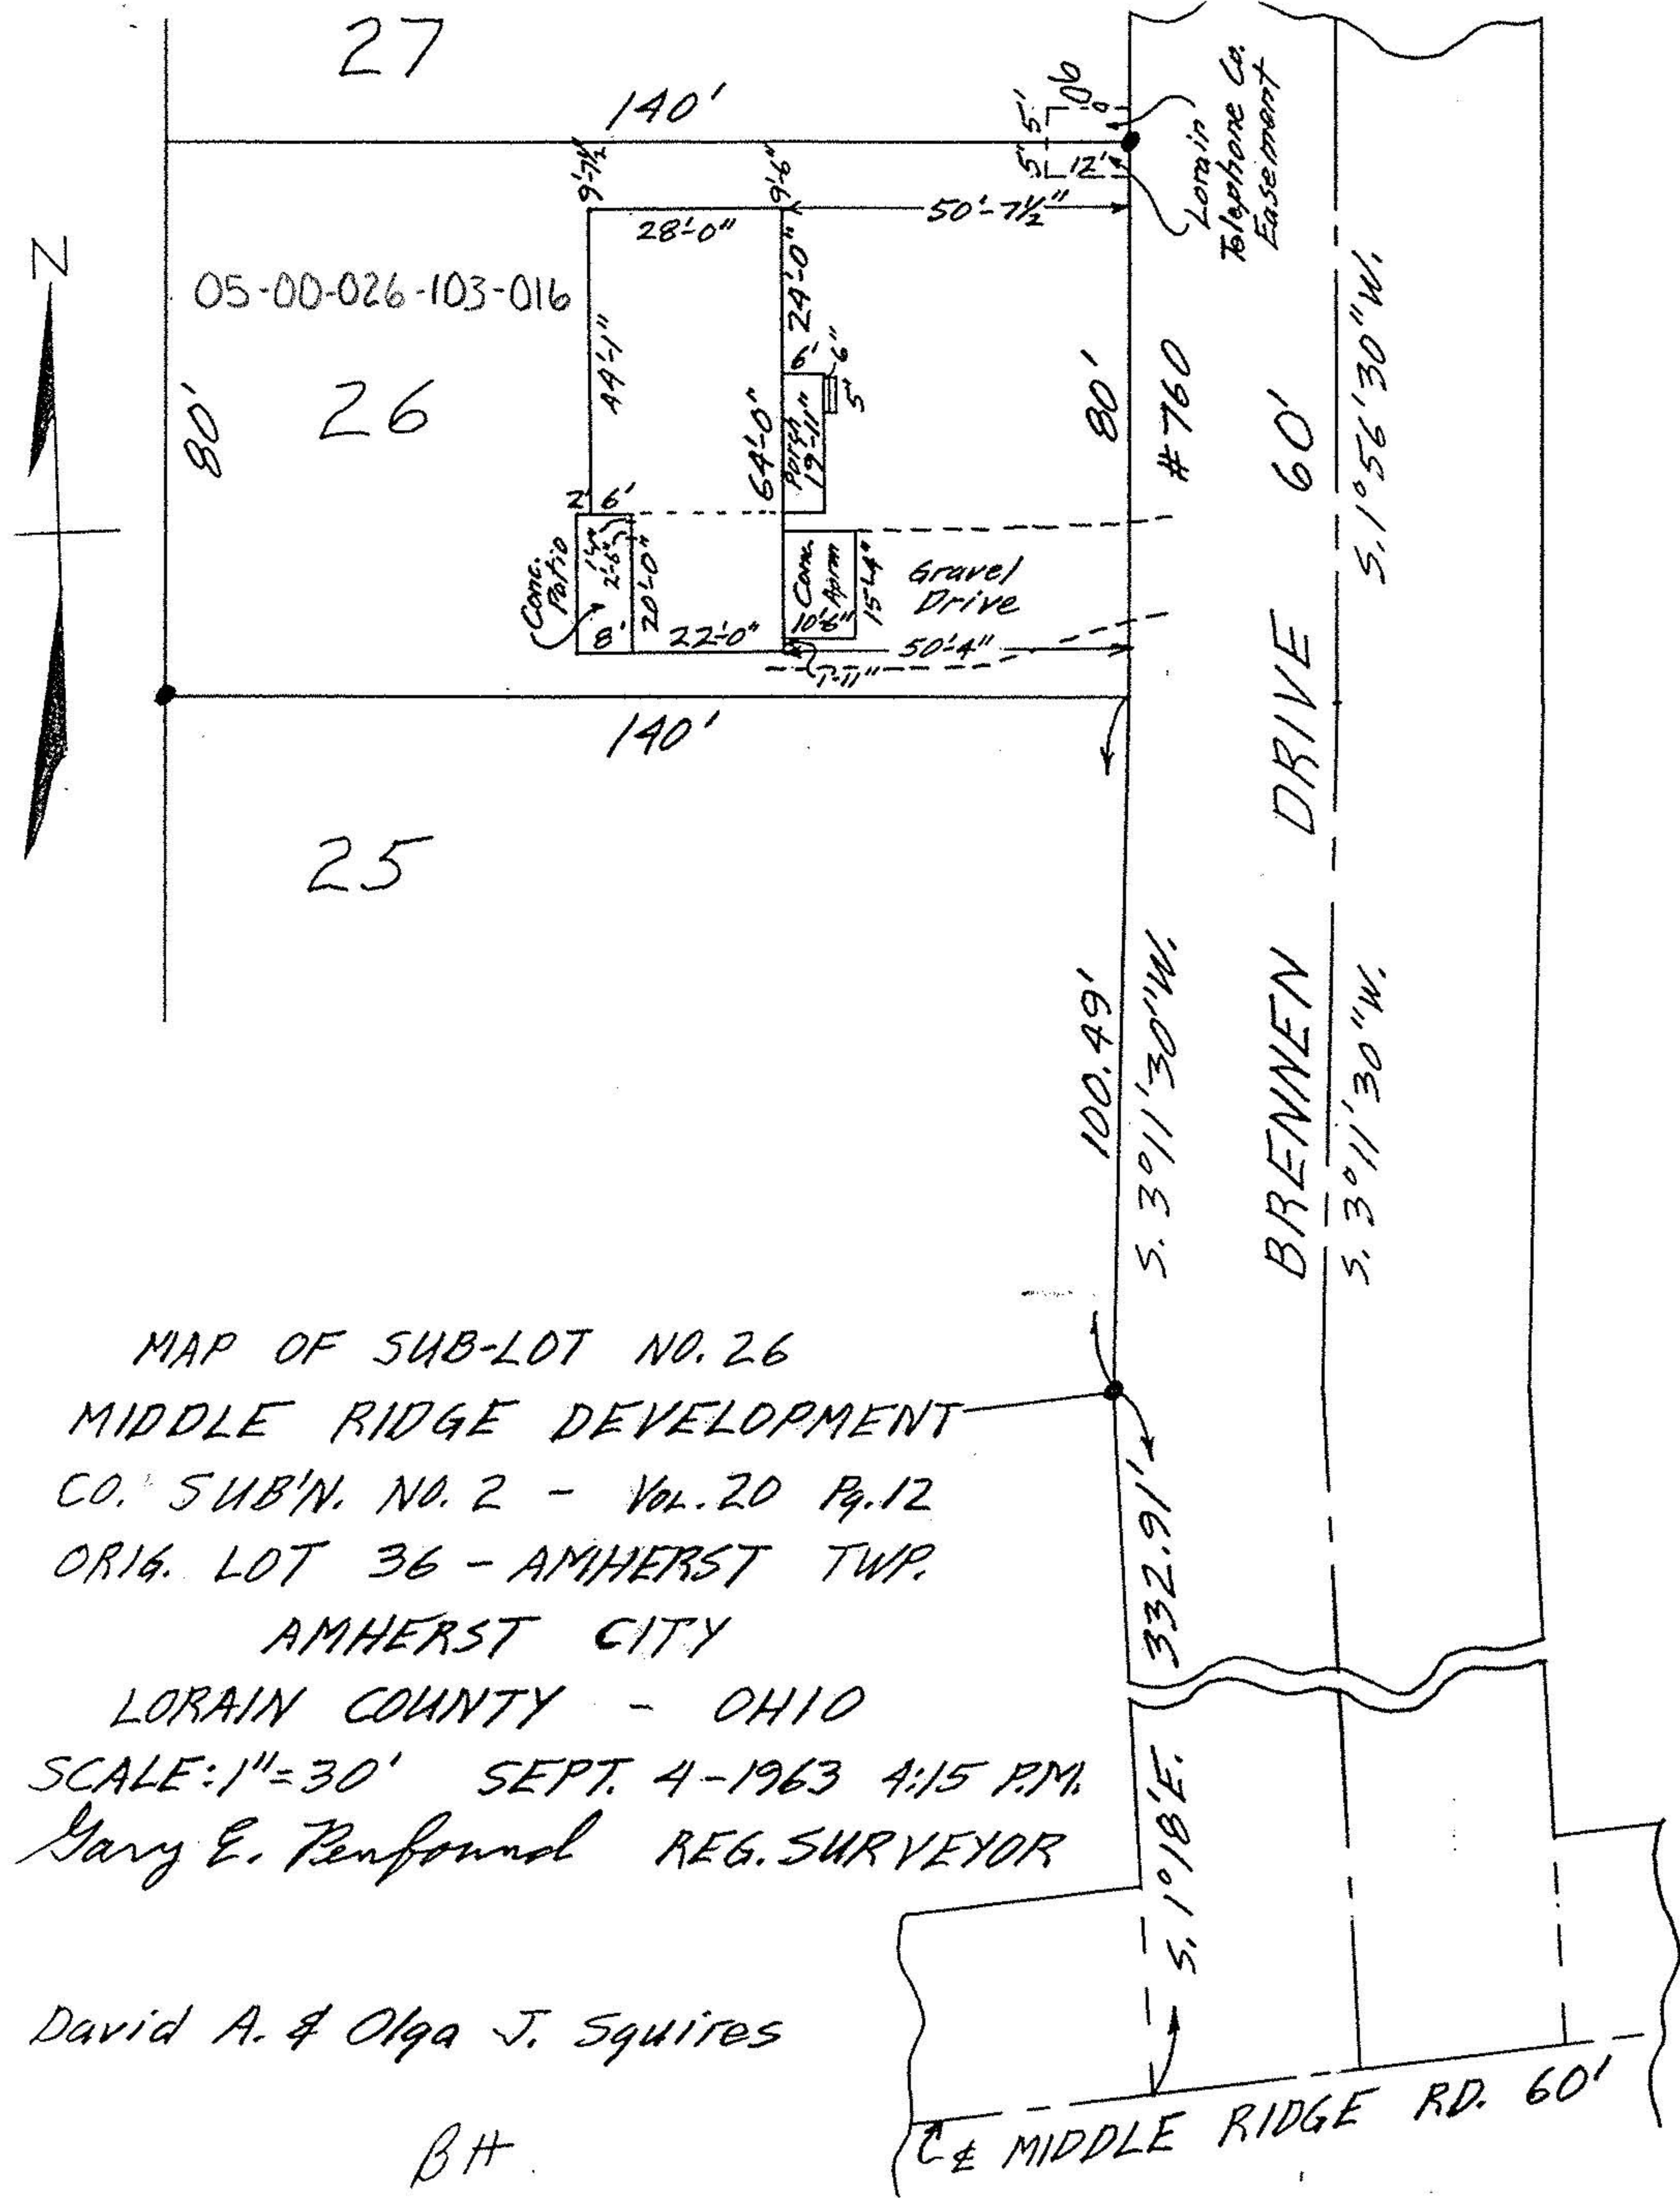 27
140'
5'
90°
5'
12'
Lorain
Telephone Co.
Easement
N
9'-7½"
9'-6"
50'-7½"
28'-0"
05-00-026-103-016
24'-0"
44'-1"
6'
6"
5'
80'
26
64'-0"
Porch
19'-11"
80'
#760
60'
S. 1°56'30"W.
2'
6'
Conc.
Patio
2'-6"
20'-0"
Conc.
Apron
10'-6"
15'-4"
Gravel
Drive
8'
22'-0"
50'-4"
1'-11"
140'
25
BRENNEN DRIVE
100.49'
S. 3°11'30"W.
S. 3°11'30"W.
MAP OF SUB-LOT NO. 26
MIDDLE RIDGE DEVELOPMENT
CO. SUB'N. NO. 2 - VOL. 20 Pg. 12
ORIG. LOT 36 - AMHERST TWP.
AMHERST CITY
LORAIN COUNTY - OHIO
SCALE: 1"=30' SEPT. 4-1963 4:15 P.M.
Gary E. Penfound REG. SURVEYOR
332.91'
S. 1°18'E.
David A. & Olga J. Squires
BH
℄ MIDDLE RIDGE RD. 60'